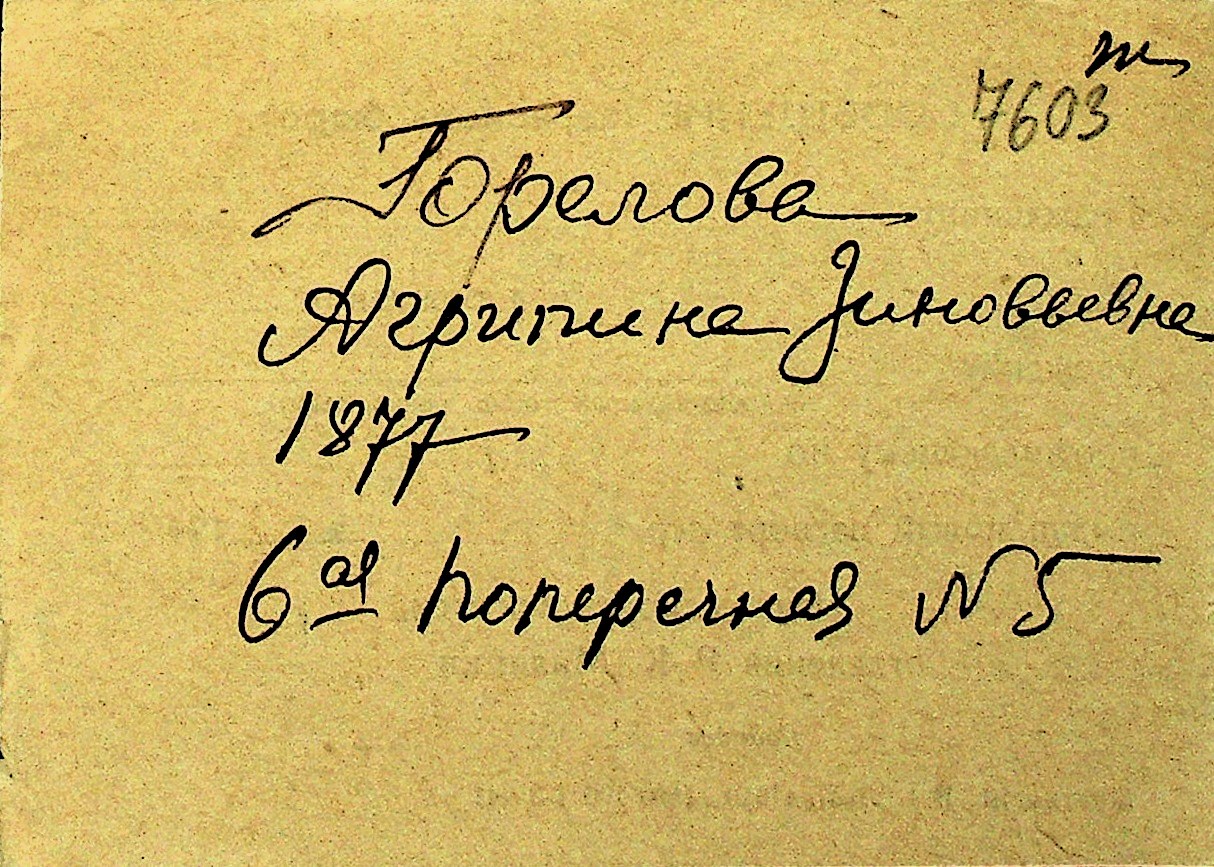 7603
Горелова
Агрипина Зиновьевна
1877
6ая поперечная N 5